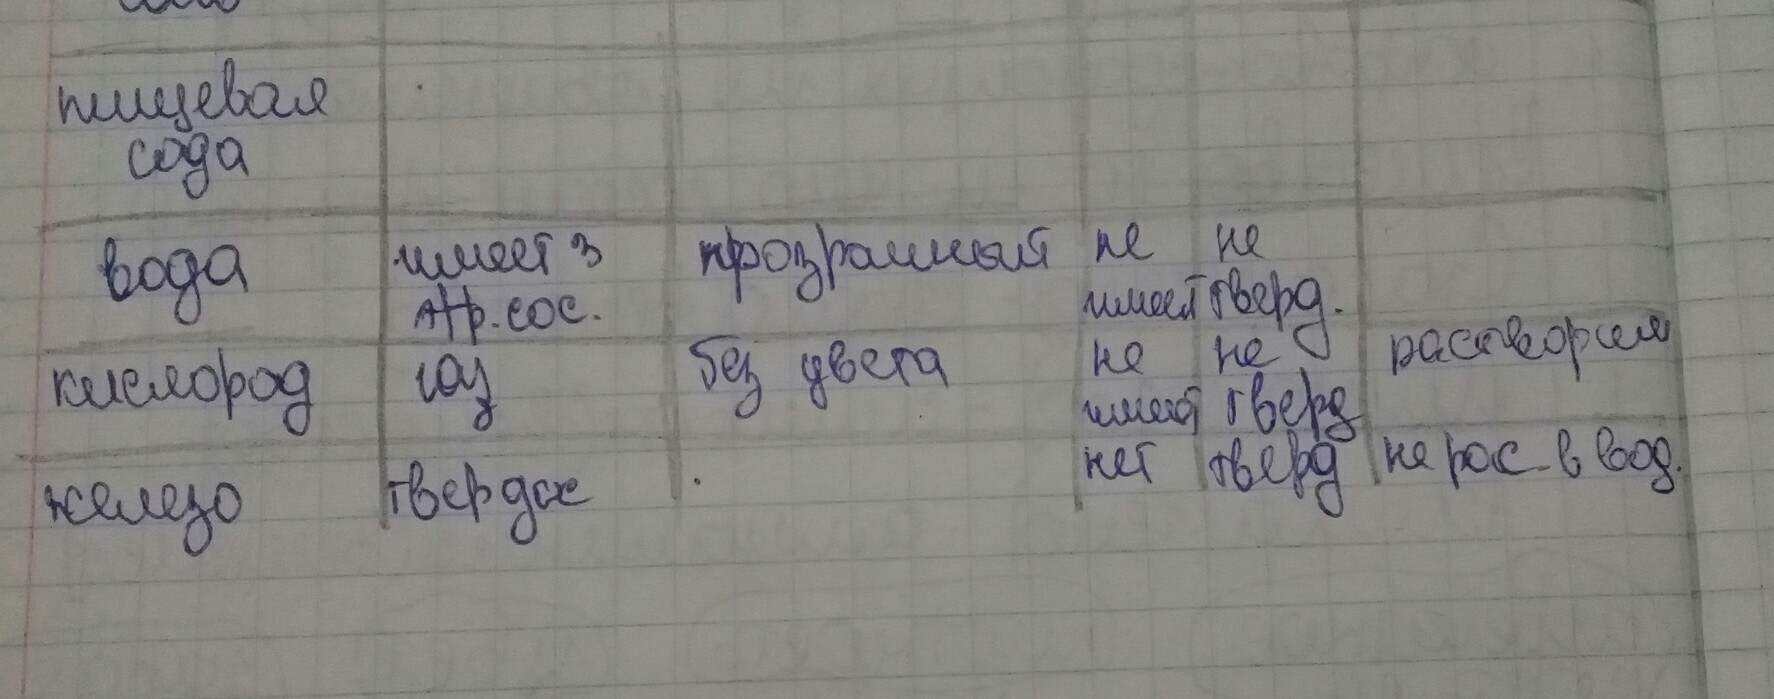 пищевая
сода
вода имеет 3 прозрачный не не
агр. сос. имеет тверд.
кислород газ без цвета не не растворим
имеет тверд
железо твердое нет тверд не рас в вод.